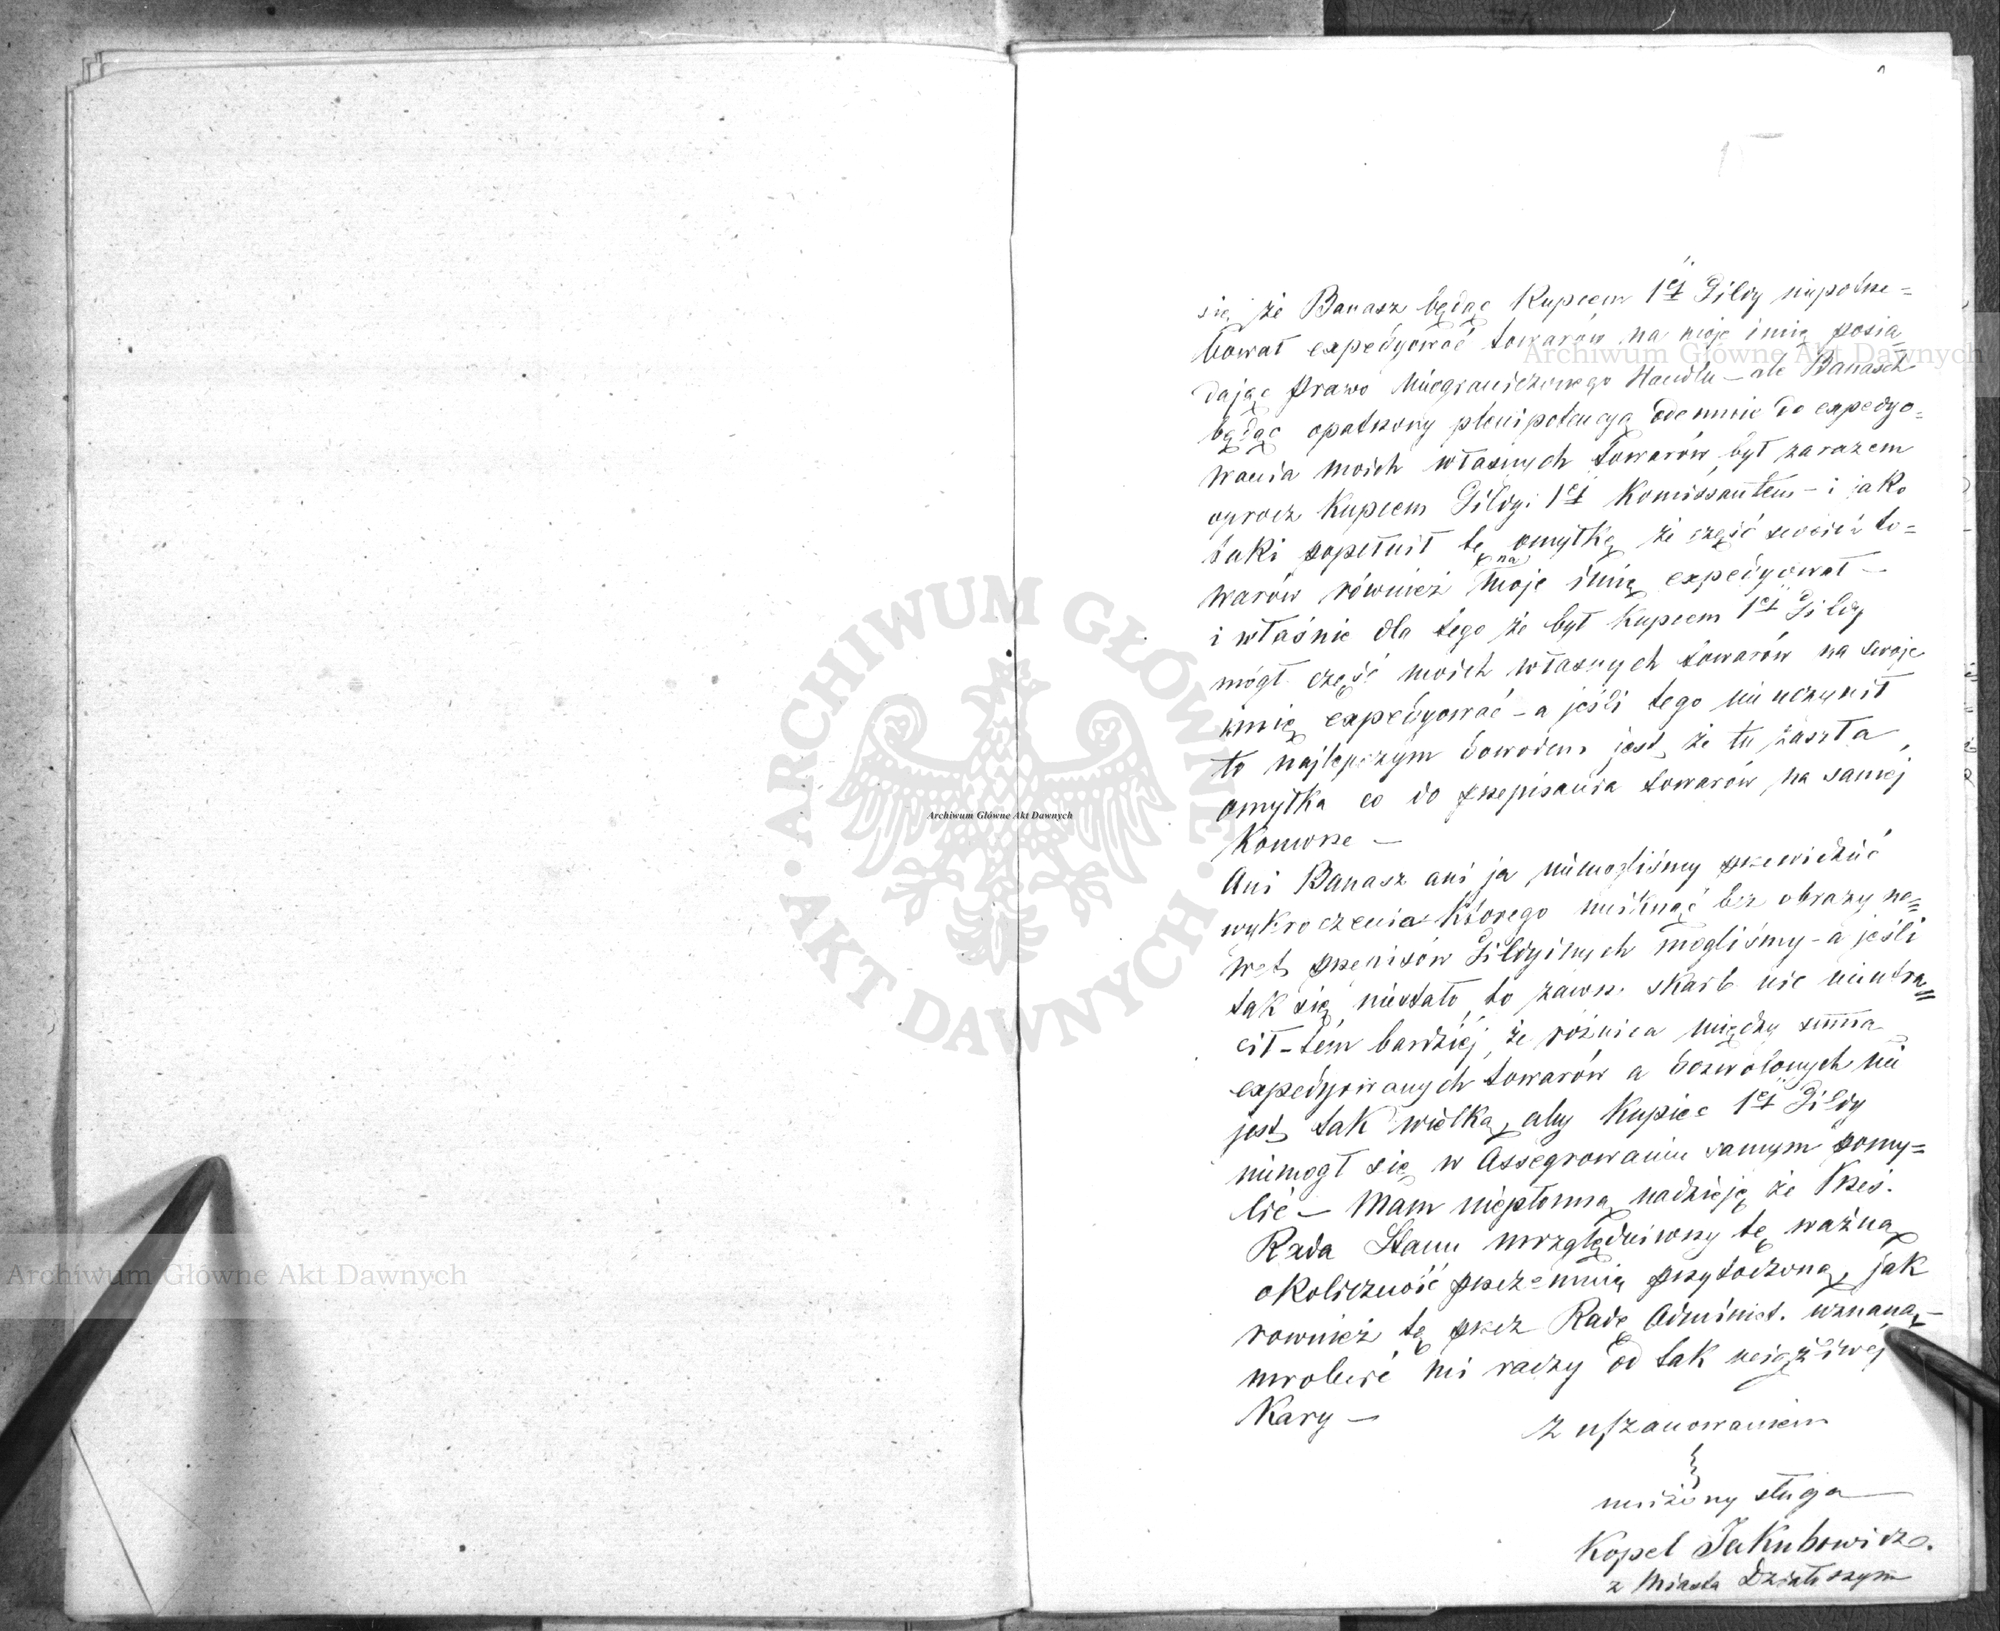 się że Banasz będąc Kupcem 1ej Gildy niepotrze=
bował expedyować towarów na moje imię posia=
dając prawo Nieograniczonego Handlu – ale Banasch
będąc opatrzony plenipotencyą odemnie do expedyo=
wania moich własnych towarów był zarazem
oprócz Kupcem Gildyi 1ej Komissantem – i jako
taki popełnił tę omyłkę że część swoich to=
warów również na moje imię expedyował –
i właśnie dla tego że był Kupcem 1ej Gildy
mógł część moich własnych towarów na swoje
imię expedyować – a jeśli tego nieuczynił
to najlepszym dowodem jest że tu zaszła
omyłka co do przepisania towarów na samej
Komorze –
Ani Banasz ani ja niemogliśmy przewidzieć
wykroczenia którego uniknąć bez obrazy na=
wet przepisów Gildyjnych mogliśmy – a jeśli
tak się niestało, to zawsze skarb nic nieutra=
cił – tém bardziéj że różnica między summą
expedyowanych towarów a dozwolonych nie
jest tak wielką, aby Kupiec 1ej Gildy
niemógł się w Assegrowaniu samym pomy=
lić – Mam niepłonną nadzieję że Prześ.
Rada Stanu uwzględniwszy tę ważną
okoliczność przezemnię przytoczoną, jak
rownież tę przez Radę Administ. uznaną –
uwolnić mi raczy od tak uciążliwej
Kary –
Z uszanowaniem
uniżony sługa
Kopel Jakubowicz.
z Miasta Działoszym
Archiwum Główne Akt Dawnych
Archiwum Główne Akt Dawnych
Archiwum Główne Akt Dawnych
ARCHIWUM GŁÓWNE
AKT DAWNYCH